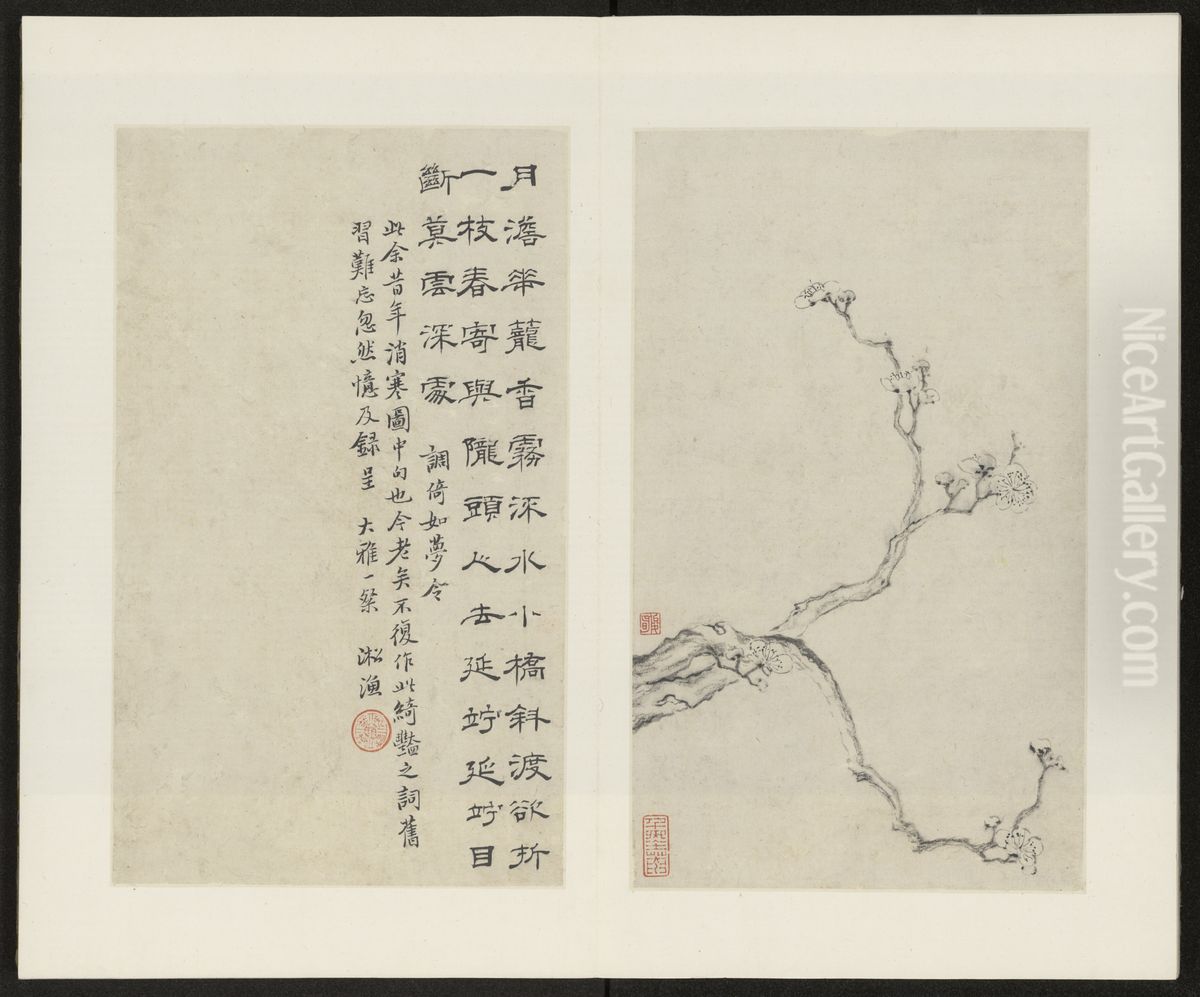 月澹華蘢香霧流水小橋斜渡欲折
一枝春寄與隴頭人去延竚延竚目
斷莫雲深處 調倚如夢令
此余昔年消寒圖中句也今老矣不復作此綺豔之詞舊
習難忘忽然憶及録呈 大雅一粲 淞漁
NiceArtGallery.com